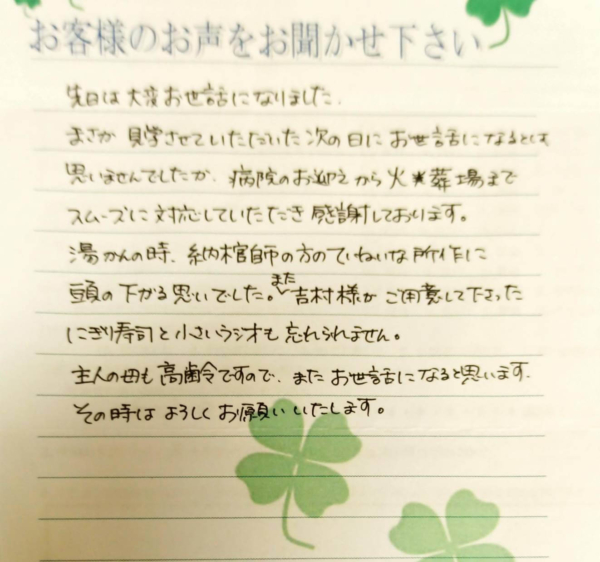 お客様のお声をお聞かせ下さい
先日は大変お世話になりました.
まさか見学させていただいた次の日にお世話になるとは
思いませんでしたが、病院のお迎えから火葬場まで
スムーズに対応していただき感謝しております。
湯かんの時、納棺師の方のていねいな所作に
頭の下がる思いでした。また吉村様がご用意して下さった
にぎり寿司と小さいラジオも忘れられません。
主人の母も高齢ですので、またお世話になると思います.
その時はよろしくお願いいたします。